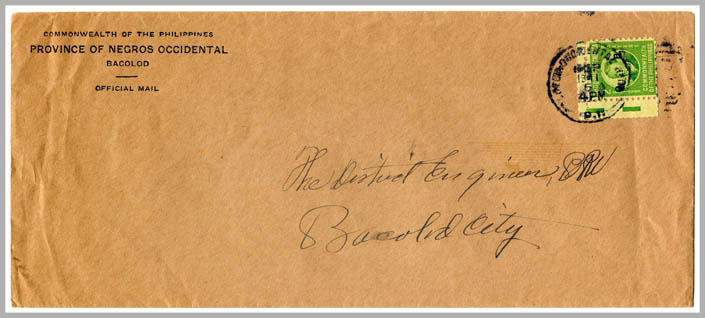 COMMONWEALTH OF THE PHILIPPINES
PROVINCE OF NEGROS OCCIDENTAL
BACOLOD
OFFICIAL MAIL
1941
4 PM
P.I.
The District Engineer, BPW
Bacolod City